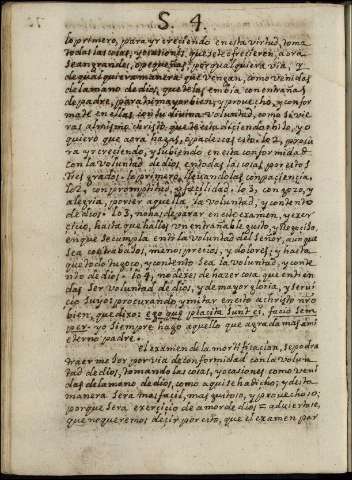 S. 4.
lo primero, para yr creciendo en esta virtud, toma
todas las cosas, y ocasiones, que se te ofrecieren, aora
sean grandes, o pequeñas, por qualquiera via, y
de qualquiera manera que vengan, como venidas
de la mano de dios, que te las embia con entrañas
de padre, para tu mayor bien, y prouecho, y confor
mate en ellas con su diuina voluntad, como si vie
ras al mismo christo, que te esta diciendo hijo, yo
quiero que aora hagas, o padezcas esto. lo 2, procu
ra yr creciendo, y subiendo en esta conformidad
con la voluntad de dios en todas las cosas por estos
tres grados. lo primero, lleuandolas con paciencia,
lo 2, con promptitud, y facilidad. lo 3, con gozo, y
alegria, por ser aquella la voluntad, y contento
de dios. lo 3, no has de parar en este examen, y exer
cicio, hasta que halles vn entrañable gusto, y regocijo,
en que se cumpla en ti la voluntad del señor, aunque
sea con trabajos, menosprecios, y dolores; y hasta
que todo tu gozo, y contento sea la voluntad, y conte
nto de dios. lo 4, no dexes de hacer cosa que entien
das ser voluntad de dios, y de mayor gloria, y serui
cio suyo, procurando ymitar en esto a christo nro
bien, que dixo: ego quæ placita sunt ei, facio sem
per. yo siempre hago aquello que agrada mas a mi
eterno padre.
el examen de la mortificacion, se podra
traer mejor por via de conformidad con la volun
tad de dios, tomando las cosas, y ocasiones como veni
das de la mano de dios, como aqui se ha dicho; y desta
manera sera mas facil, mas gustoso, y prouechoso;
porque sera exercicio de amor de dios = aduiertose,
que no queremos decir por esto, que el examen par